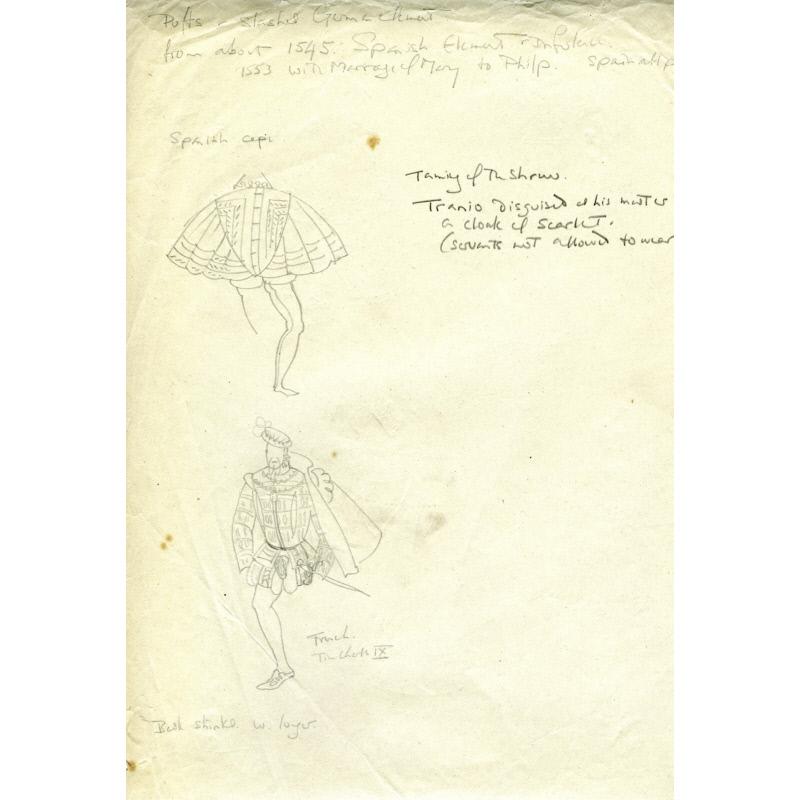 Puffs & slashes German Element
from about 1545. Spanish Element
1553 with Marraige of Mary to Philp.
Spanish cape
Taming of The Shrew.
Tranio Disguised as his master
a cloak of Scarlet.
(servants not allowed to wear
French.
IX